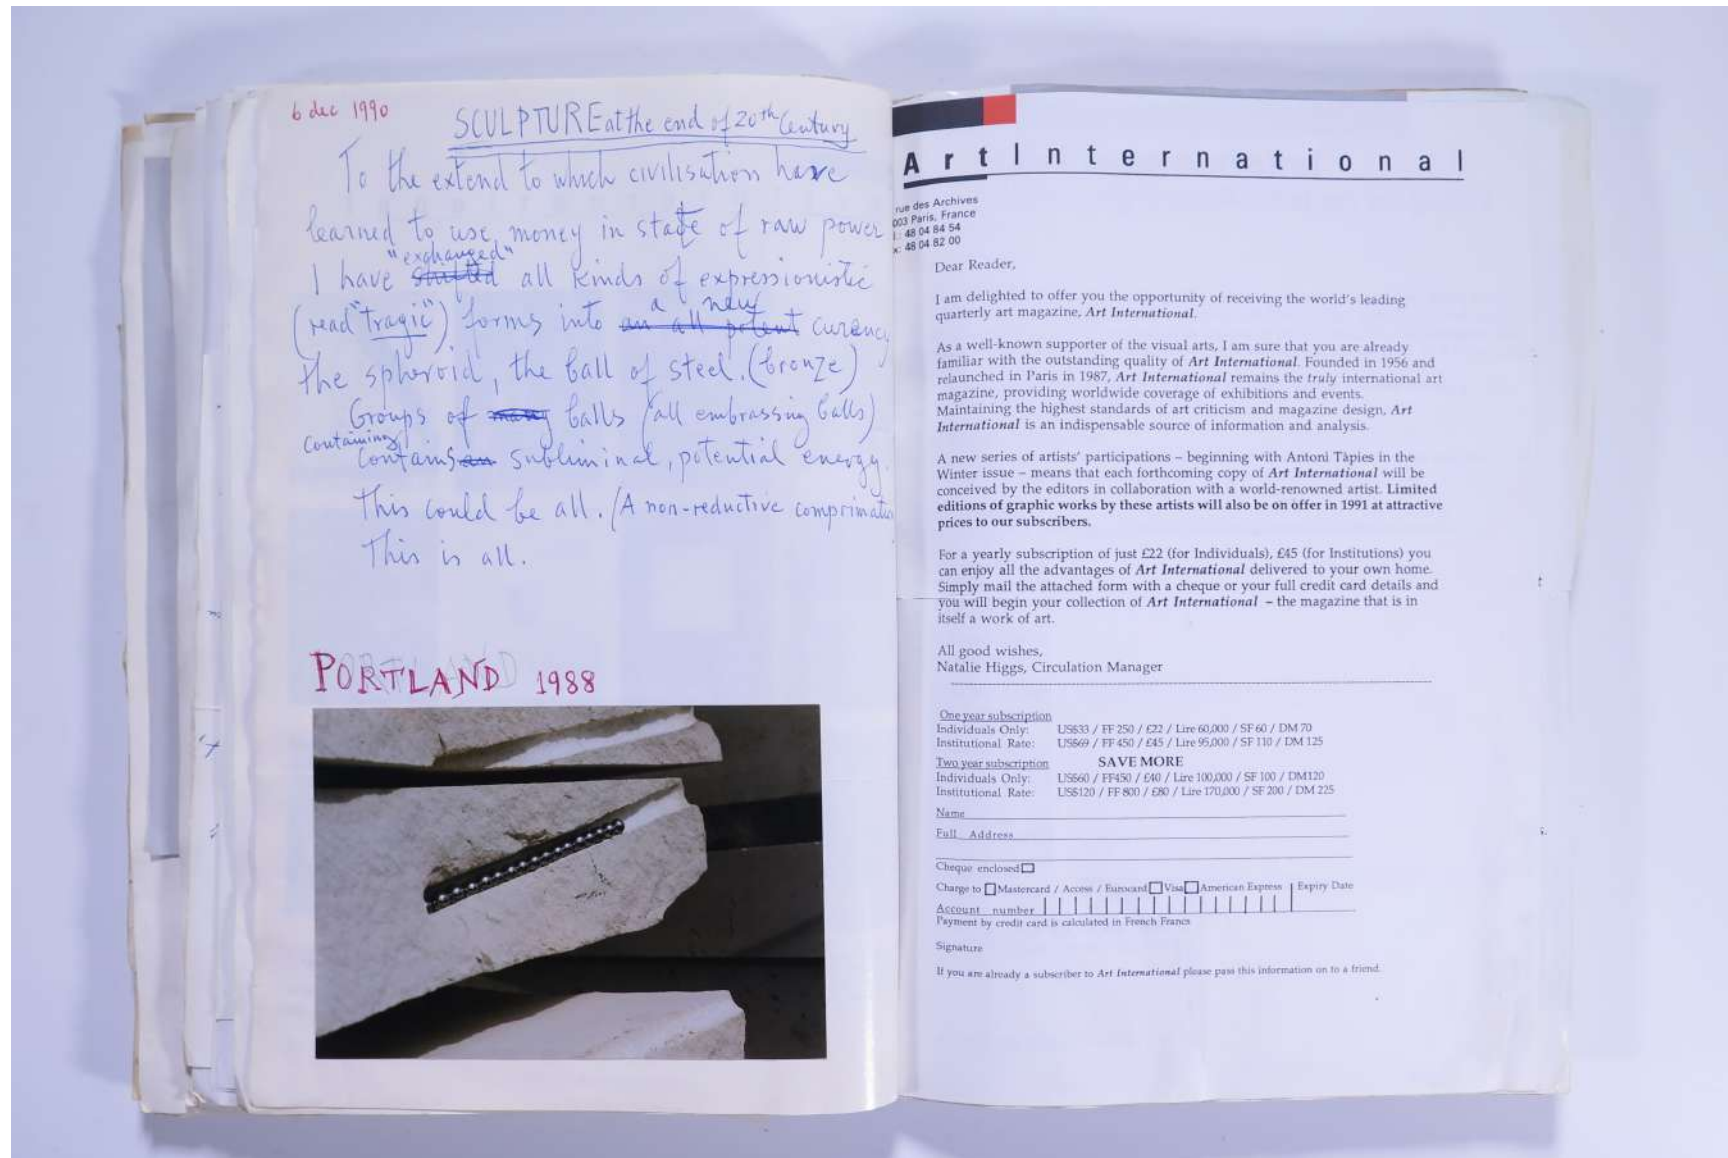 6 dec 1990
SCULPTURE at the end of 20th Century
To the extend to which civilisation have
learned to use money in state of raw power
"exchanged"
I have shifted all kinds of expressionistic
a new
(read "tragic") forms into an all potent curency
the spheroid, the ball of steel. (bronze)
Groups of many balls (all embrassing balls)
Containing
Contains an subliminal, potential energy.
This could be all. (A non-reductive
This is all.
PORTLAND 1988
Art International
rue des Archives
003 Paris, France
: 48 04 84 54
x: 48 04 82 00
Dear Reader,
I am delighted to offer you the opportunity of receiving the world's leading
quarterly art magazine, Art International.
As a well-known supporter of the visual arts, I am sure that you are already
familiar with the outstanding quality of Art International. Founded in 1956 and
relaunched in Paris in 1987, Art International remains the truly international art
magazine, providing worldwide coverage of exhibitions and events.
Maintaining the highest standards of art criticism and magazine design, Art
International is an indispensable source of information and analysis.
A new series of artists' participations – beginning with Antoni Tàpies in the
Winter issue – means that each forthcoming copy of Art International will be
conceived by the editors in collaboration with a world-renowned artist. Limited
editions of graphic works by these artists will also be on offer in 1991 at attractive
prices to our subscribers.
For a yearly subscription of just £22 (for Individuals), £45 (for Institutions) you
can enjoy all the advantages of Art International delivered to your own home.
Simply mail the attached form with a cheque or your full credit card details and
you will begin your collection of Art International – the magazine that is in
itself a work of art.
All good wishes,
Natalie Higgs, Circulation Manager
One year subscription
Individuals Only: US$33 / FF 250 / £22 / Lire 60,000 / SF 60 / DM 70
Institutional Rate: US$69 / FF 450 / £45 / Lire 95,000 / SF 110 / DM 125
Two year subscription SAVE MORE
Individuals Only: US$60 / FF450 / £40 / Lire 100,000 / SF 100 / DM120
Institutional Rate: US$120 / FF 800 / £80 / Lire 170,000 / SF 200 / DM 225
Name
Full Address
Cheque enclosed
Charge to Mastercard / Access / Eurocard Visa American Express Expiry Date
Account number
Payment by credit card is calculated in French Francs
Signature
If you are already a subscriber to Art International please pass this information on to a friend.